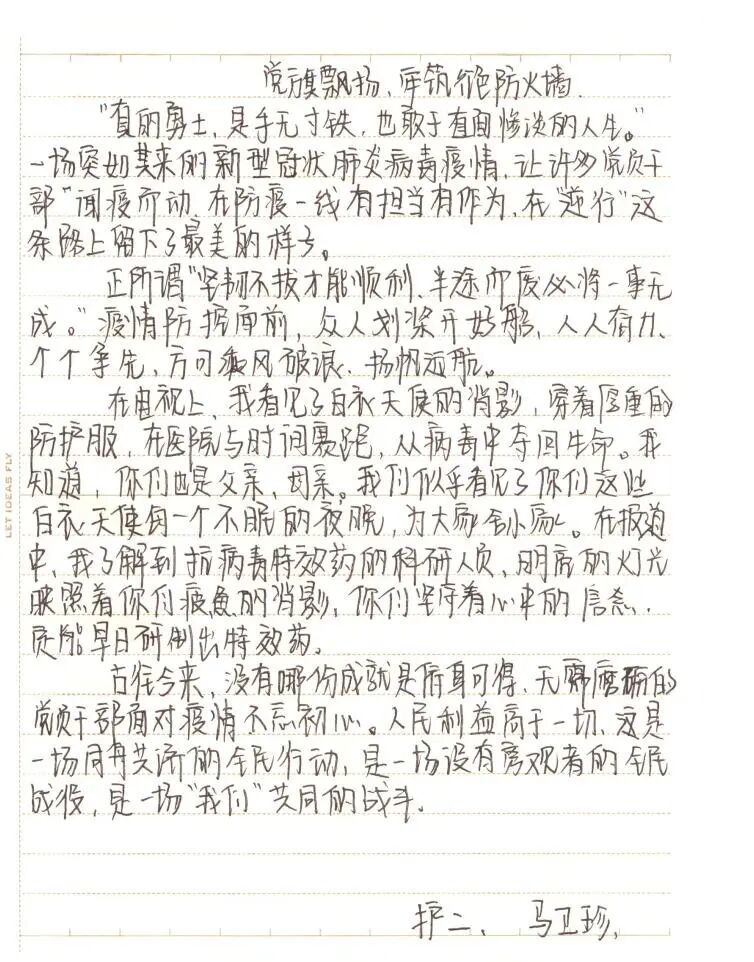 党旗飘扬,牢筑红色防火墙.
“真的勇士,是手无寸铁,也敢于直面惨淡的人生。”
一场突如其来的新型冠状肺炎病毒疫情,让许多党员干
部“闻疫而动,在防疫一线有担当有作为,在“逆行”这
条路上留下了最美的样子。
正所谓“坚韧不拔才能顺利、半途而废必将一事无
成。”疫情防护面前,众人划桨开好船,人人奋力、
个个争先,方可乘风破浪、扬帆远航。
在电视上,我看见了白衣天使的背影,穿着厚重的
防护服,在医院与时间赛跑,从病毒中夺回生命。我
知道,你们也是父亲、母亲。我们似乎看见了你们这些
白衣天使每一个不眠的夜晚,为大家舍小家。在报道
中,我了解到抗病毒特效药的科研人员,明亮的灯光
映照着你们疲惫的背影,你们坚守着心中的信念,
定能早日研制出特效药。
古往今来,没有哪份成就是俯身可得,无需磨砺的
党员干部面对疫情不忘初心。人民利益高于一切,这是
一场同舟共济的全民行动,是一场没有旁观者的全民
战役,是一场“我们”共同的战斗.
护二、马卫珍,
LET IDEAS FLY